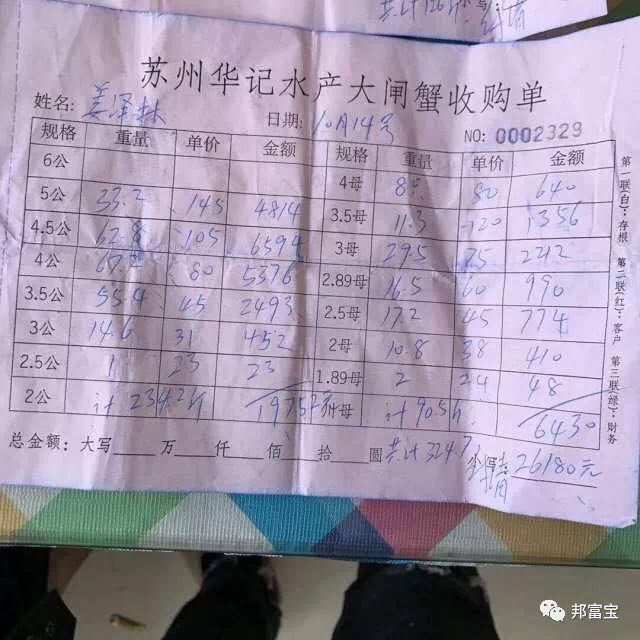 苏州华记水产大闸蟹收购单
姓名: 姜泽林 日期: 10月14号 NO: 0002329
规格 重量 单价 金额 规格 重量 单价 金额
6公 4母 80 640
5公 33.2 145 4814 3.5母 11.3 120 1356
4.5公 62.8 105 6594 3母 29.5 2212
4公 80 5376 2.89母 16.5 60 990
3.5公 55.4 45 2493 2.5母 17.2 45 774
3公 14.6 31 452 2母 10.8 38 410
2.5公 1 23 23 1.89母 2 24 48
2公 计 234.2斤 19752元 母 计 90.5斤 6430
总金额: 大写 万 仟 佰 拾 圆 共计324.7 26180元
第一联白:存根 第二联红:客户 第三联绿:财务
邦富宝